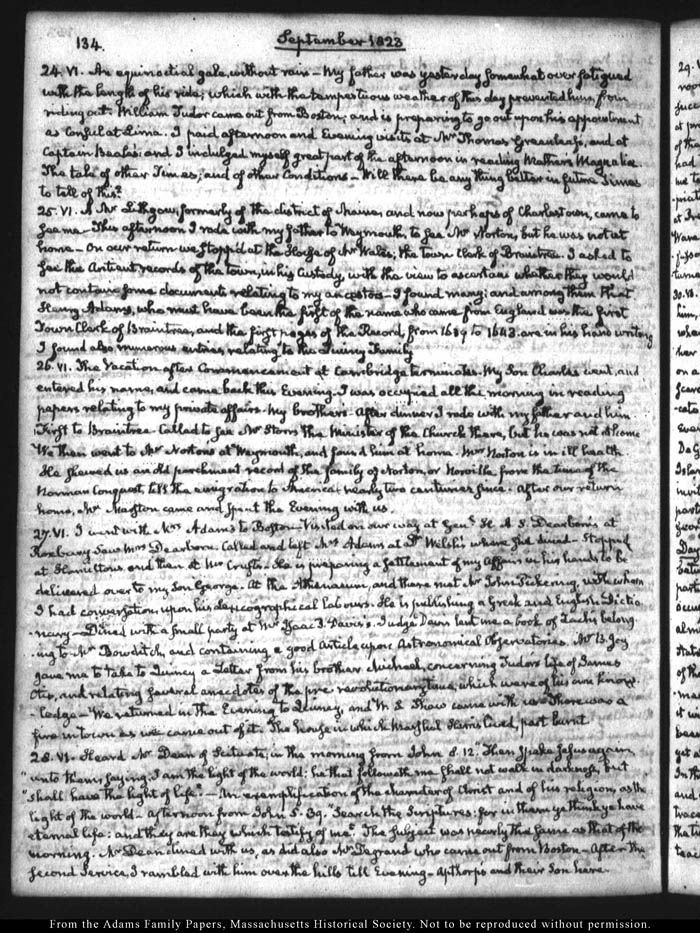 134.
September 1823
24. VI. An equinoctial gale, without rain — My father was yesterday somewhat over fatigued
with the length of his ride; which with the tempestuous weather of this day prevented him from
riding out. William Tudor came out from Boston; and is preparing to go out upon his appointment
as Consul at Lima. I paid afternoon and Evening visits at Mr Thomas Greenleaf's, and at
Captain Beale's: and I indulged myself great part of the afternoon in reading Mathers Magnalia.
The tale of other Times; and of other Conditions — Will there be any thing better in future Times
to tell of this?
25. VI. A Mr Lithgow, formerly of the district of Maine, and now perhaps of Charlestown, came to
see me — This afternoon I rode with my father to Weymouth, to see Mr Norton, but he was not at
home — On our return we stopp'd at the House of Mr Wales, the Town Clerk of Braintree. I asked to
see the Antient records of the town, in his Custody, with the view to ascertain whether they would
not contain some documents relating to my ancestors — I found many; and among them that
Henry Adams, who must have been the first of the name who came from England was the first
Town Clerk of Braintree, and the first pages of the Record, from 1639 to 1643 are in his hand writing
I found also numerous entries relating to the Quincy Family
26. VI. The Vacation after Commencement at Cambridge terminates. My Son Charles went, and
entered his name, and came back this Evening. I was occupied all the morning in reading
papers relating to my private affairs. My brothers. After dinner I rode with my father and him
First to Braintree. Called to see Mr Storrs the Minister of the Church there, but he was not at home
We then went to Mr Norton's at Weymouth, and found him at home. Mrs Norton is in ill health.
He shewed us an old parchment record of the family of Norton, or Norville, from the time of the
Norman Conquest, till the emigration to America nearly two centuries since. After our return
home, Mr Marston came and spent the Evening with us.
27. VI. I went with Mrs Adams to Boston — Visited on our way at Genl H. A. S. Dearborn's at
Roxbury saw Mrs Dearborn. Called and left Mrs Adams at Dr Welsh's where she dined — Stopped
at Hamilton's and then at Mr Cruft's. He is preparing a settlement of my Affairs in his hands to be
delivered over to my Son George. At the Athenaeum, and there met Mr John Pickering, with whom
I had conversation upon his lexicographical labours. He is publishing a Greek and English Dictio
-nary — Dined with a small party at Mr Isaac P. Davis's. Judge Davis lent me a book of Zach's belong
-ing to Mr Bowditch, and containing a good Article upon Astronomical Observatories. Mr B. Joy
gave me to take to Quincy a Letter from his brother Michael, concerning Tudor's life of James
Otis, and relating several anecdotes of the pre revolutionary times, which were of his own know-
-ledge — We returned in the Evening to Quincy, and W S. Shaw came with us — There was a
fire in town as we came out of it. The house in which Marshal Harris lived, part burnt.
28. VI. Heard Mr Dean of Scituate, in the morning from John 8. 12. "Then spake Jesus again
"unto them, saying, I am the light of the world: he that followeth me shall not walk in darkness, but
"shall have the light of life." — An exemplification of the character of Christ and of his religion, as the
light of the world — Afternoon from John 5. 39. "Search the Scriptures: for in them ye think ye have
eternal life: and they are they which testify of me." The subject was nearly the same as that of the
morning. Mr Dean dined with us, as did also Mr Degrand who came out from Boston — After the
second Service, I rambled with him over the hills till Evening — Apthorp's and their Son here
From the Adams Family Papers, Massachusetts Historical Society. Not to be reproduced without permission.